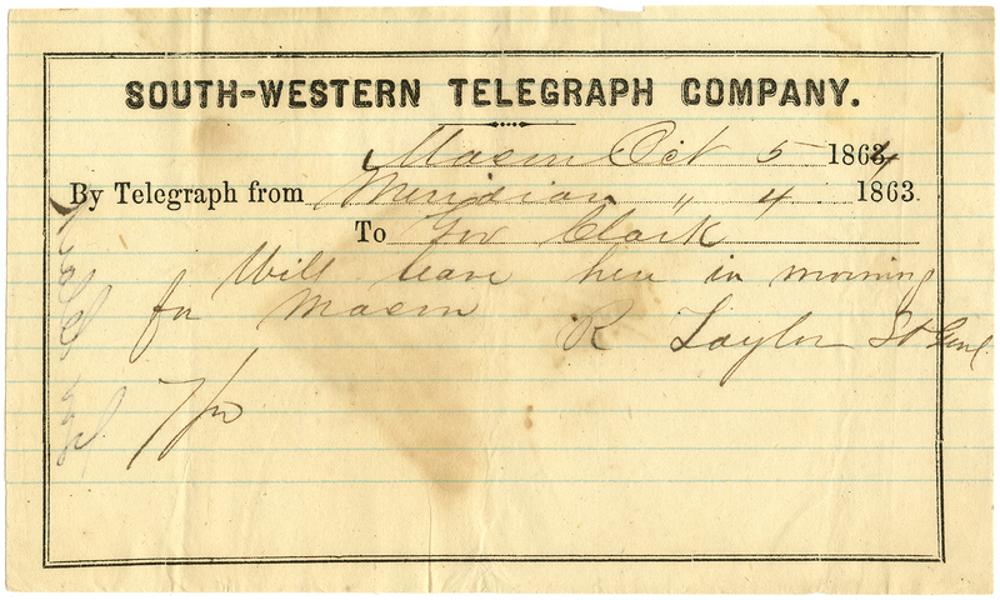 SOUTH-WESTERN TELEGRAPH COMPANY.
Macon Oct 5 1864
By Telegraph from Meridian " 4 1863.
To Gov Clark
Will leave here in morning
for Macon
R Taylor Lt Genl
7/